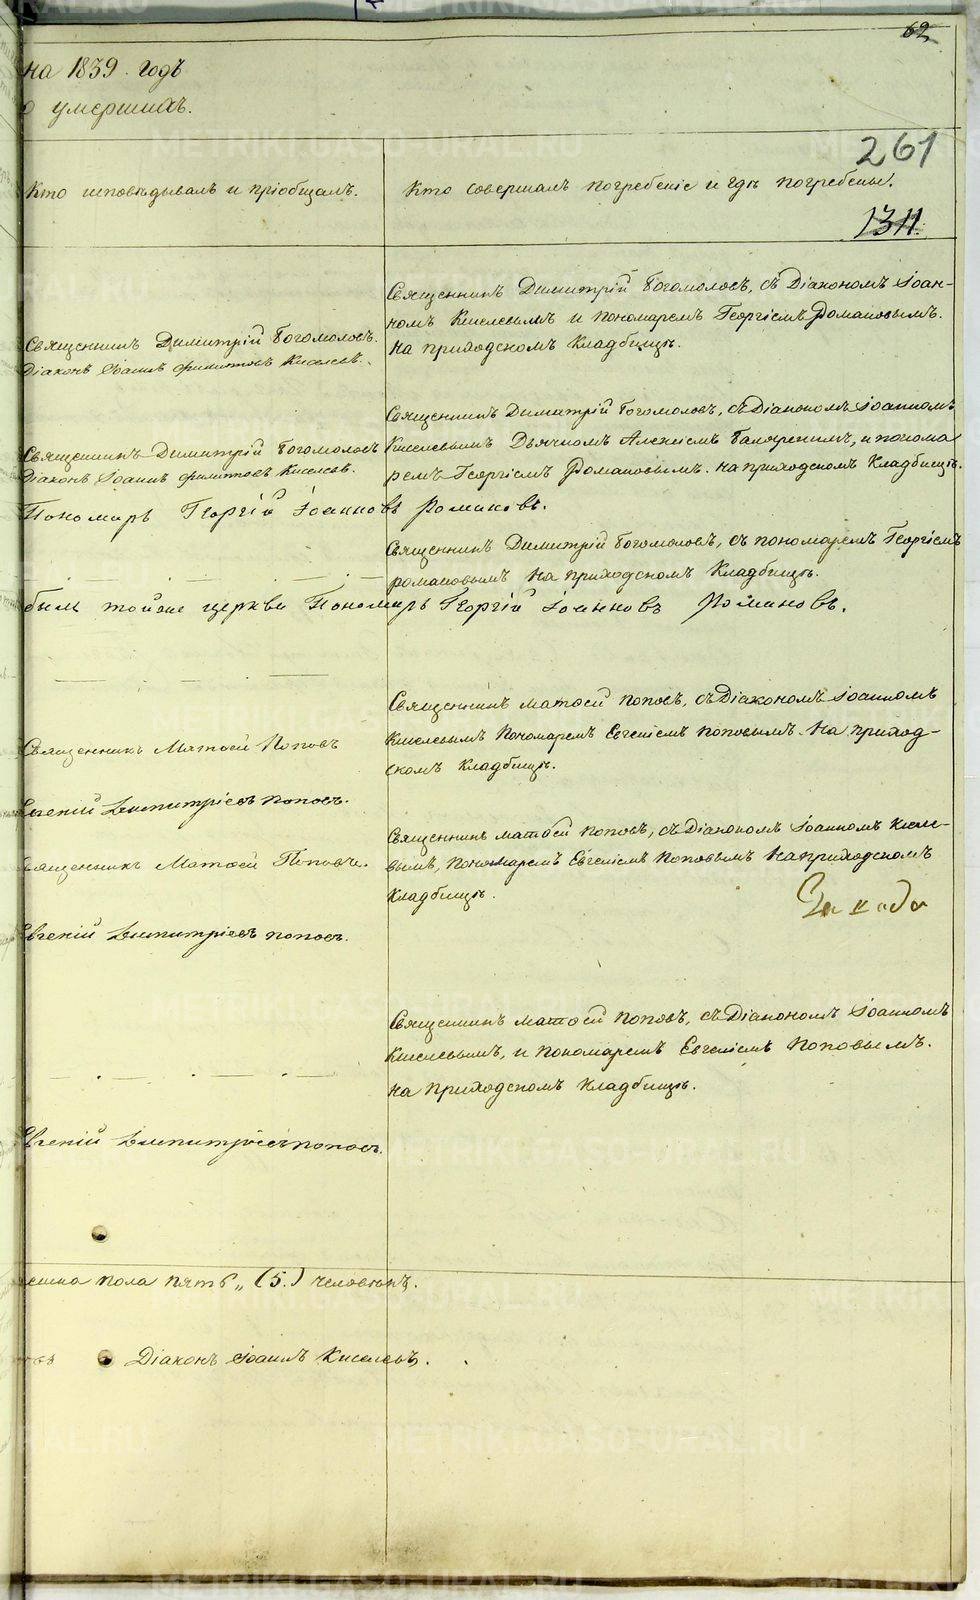 62
на 1839. годъ
о умершихъ.
261
Кто исповѣдывалъ и пріобщалъ.
Кто совершалъ погребеніе и гдѣ погребены.
1311.
Священникъ Димитрій Богомоловъ, съ Діакономъ Іоан-
номъ Киселевымъ и пономаремъ Георгіемъ Романовымъ.
на приходскомъ кладбищѣ.
Священникъ Димитрій Богомоловъ.
Діаконъ Іоаннъ Филиповъ Киселевъ.
Священникъ Димитрій Богомоловъ, съ Діакономъ Іоанномъ
Киселевымъ Дьячкомъ Алексіемъ, и понома
ремъ Георгіемъ Романовымъ. на приходскомъ кладбищѣ.
Священникъ Димитрій Богомоловъ
Діаконъ Іоаннъ Филиповъ Киселевъ.
Пономарь Георгій Іоанновъ Романовъ.
Священникъ Димитрій Богомоловъ, съ пономаремъ Георгіемъ
романовымъ на приходскомъ кладбищѣ.
былъ тойже церкви Пономарь Георгій Іоанновъ Романовъ.
Священникъ Матѳей Поповъ, съ Діакономъ Іоанномъ
Киселевымъ Пономаремъ Евгеніемъ Поповымъ. На приход-
скомъ кладбищѣ.
Священникъ Матѳей Поповъ
Евгеній Димитріевъ Поповъ.
Священникъ Матѳей Поповъ, съ Діакономъ Іоанномъ Кисле-
вымъ, пономаремъ Евгеніемъ Поповымъ На приходскомъ
кладбищѣ.
Священникъ Матѳей Поповъ.
Евгеній Димитріевъ Поповъ.
Священникъ Матѳей Поповъ, съ Діакономъ Іоанномъ
Киселевымъ, и пономаремъ Евгеніемъ Поповымъ.
на приходскомъ кладбищѣ.
Евгеній Димитріевъ Поповъ.
пола пять „ (5.) человѣкъ.
Діаконъ Іоаннъ Киселевъ.
METRIKI.GASO-URAL.RU